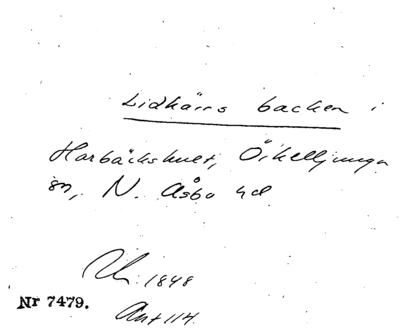 Lidkärrs backen i
Harbäckshult, Örkelljunga
sn, N. Åsbo hd
1848
Nr 7479.
Ant 114.